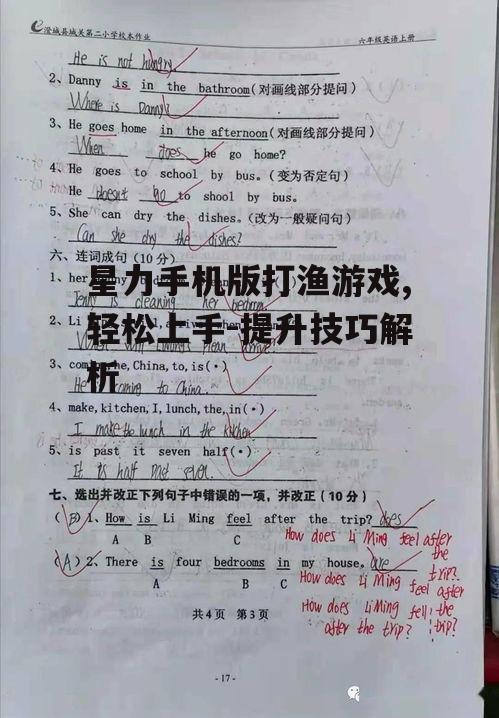 澄城县城关第二小学校本作业 六年级英语上册
He is not hungry
2、Danny is in the bathroom(对画线部分提问)
Where is Danny?
3、He goes home in the afternoon(对画线部分提问)
When does he go home?
4、He goes to school by bus.(变为否定句)
He doesn't go to shool by bus.
5、She can dry the dishes.(改为一般疑问句)
Can she dry the dishes?
六、连词成句(10分)
星力手机版打渔游戏,
1、her
Jenny is cleaning her bedroom.
轻松上手-提升技巧解
2、Li
析
3、come, he,China,to,is(·)
He is coming to China.
4、make,kitchen,I,lunch,the,in(·)
I make the lunch in the kitchen
5、is past it seven half(·)
It is half past seven.
七、选出并改正下列句子中错误的一项,并改正(10分)
(B)1、How is Li Ming feel after the trip? does
A B C
How does Li Ming feel after the trip?
(A)2、There is four bedrooms in my house. are
A B C
How does Li Ming feel after the trip?
How does Li Ming fell after the trip?
共4页 第3页
-17-